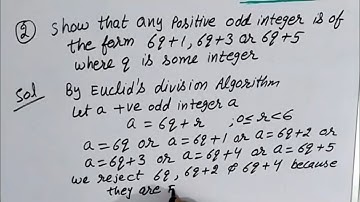 ② Show that any Positive odd integer is of
the form 6q+1, 6q+3 or 6q+5
where q is some integer
Sol By Euclid's division Algorithm
Let a +ve odd integer a
a = 6q + r ; 0 ≤ r < 6
a = 6q or a = 6q+1 or a = 6q+2 or
a = 6q+3 or a = 6q+4 or a = 6q+5
we reject 6q, 6q+2 & 6q+4 because
they are